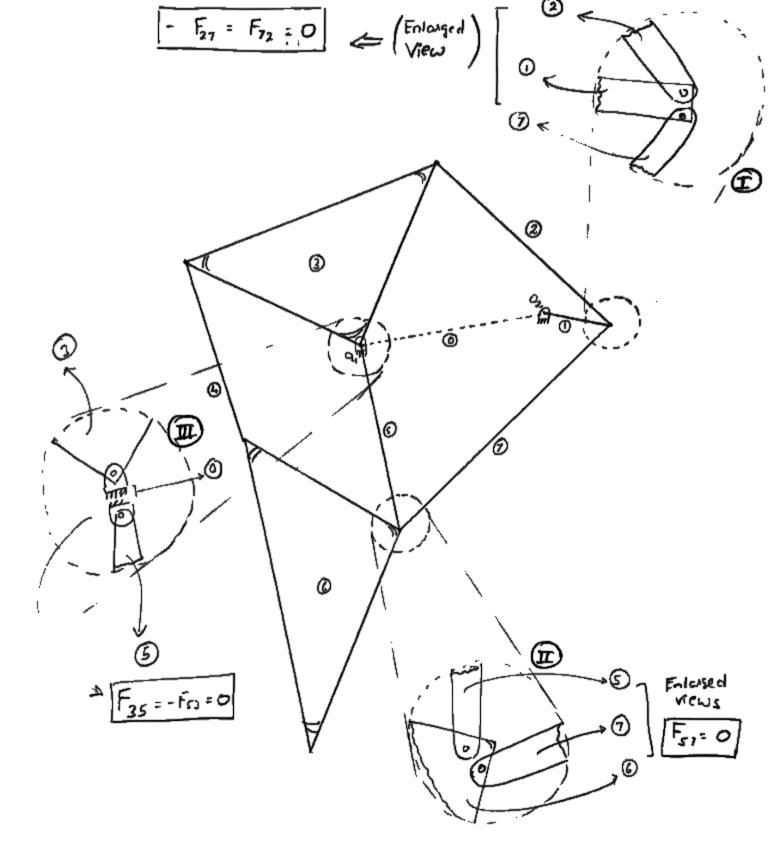 - F₂₇ = F₇₂ = 0
⇐ (Enlarged View)
②
①
⑦
I
②
③
O₂
①
⓪
O₁
④
⑤
⑦
③
III
⓪
⑥
⑤
II
→ F₃₅ = -F₅₃ = 0
⑤
⑦
⑥
Enlarged
views
F₅₇ = 0